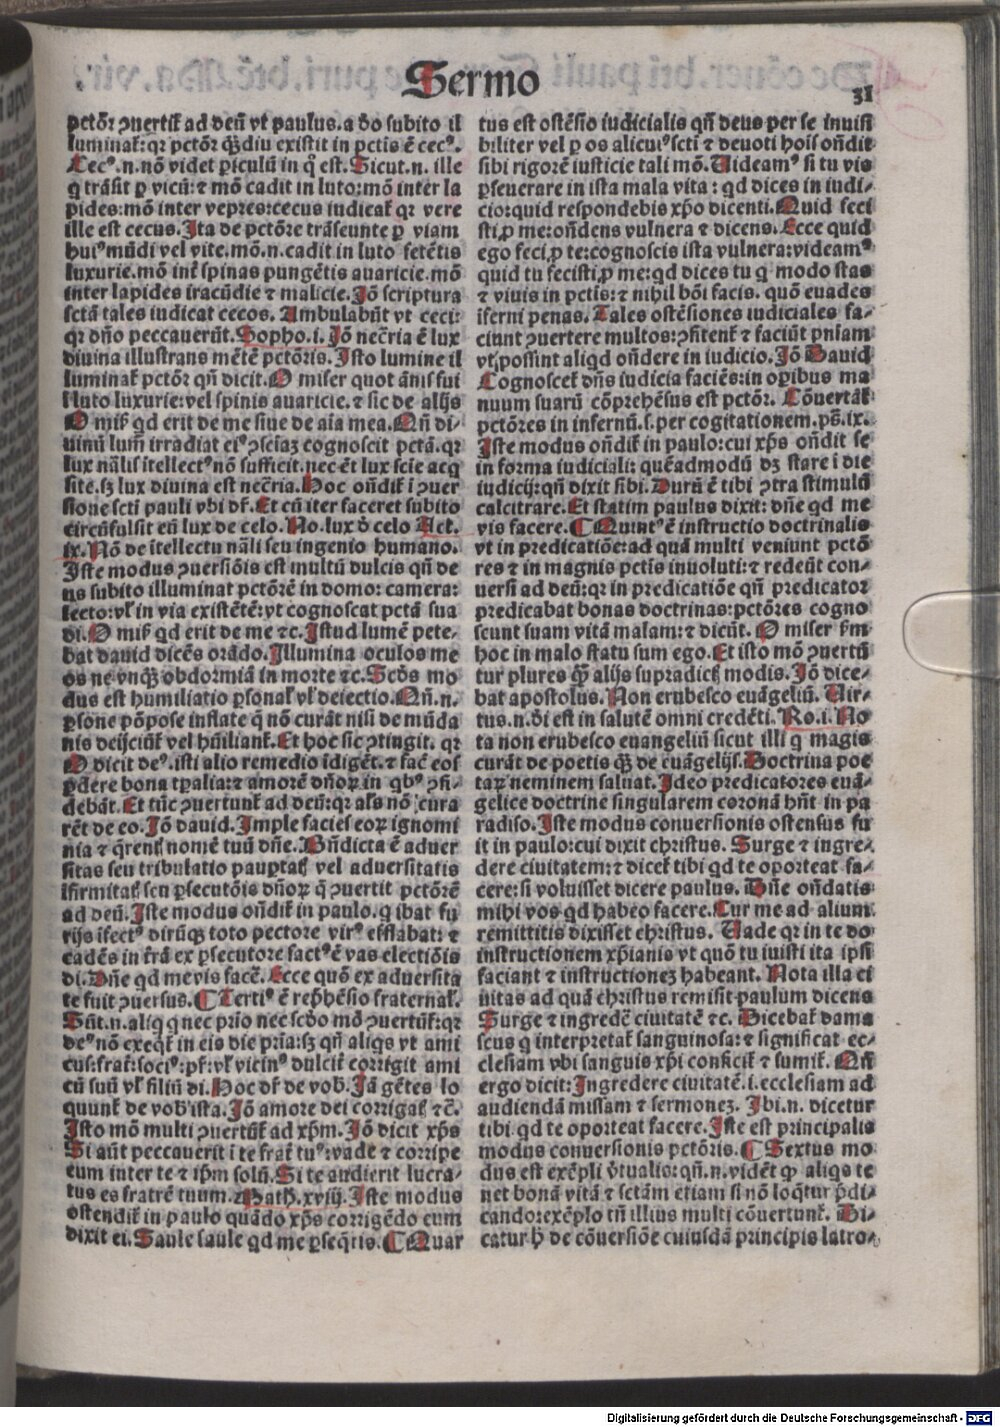 Sermo
31
pctōꝛ ꝯuertiť ad deū vt paulus. a dō subito il
luminať: qꝛ pctōꝛ qͣdiu existit in pctis ē cecꝰ.
Cecꝰ.n.nō videt ꝑiculū in q̊ est. Sicut.n. ille
q trāsit ꝑ vicū: ⁊ mō cadit in luto: mō inter la
pides: mō inter vepres: cecus iudicať qꝛ vere
ille est cecus. Ita de pctōre trāseunte ꝑ viam
huiꝰ mūdi vel vite. mō.n.cadit in luto fetētis
luxurie. mō inť spinas pungētis auaricie. mō
inter lapides iracūdie ⁊ malicie. Jō scriptura
sctā tales iudicat cecos. Ambulabūt vt ceci:
qꝛ dn̄o peccauerūt. Sopho.i. Jō necͥria ē lux
diuina illustrans mētē pctōris. Isto lumine il
luminať pctōꝛ qn̄ dicit. O miser quot ānis fui
i luto luxurie: vel spinis auaricie. ⁊ sic de alijs
O misẜ qd erit de me siue de aīa mea. Qn̄ di⸗
uinū lumē irradiat eiꝰ ꝯsciaꝫ cognoscit pctā. qꝛ
lux nālis ītellectꝰ nō sufficit. nec ēt lux scīe acq
site. sꝫ lux diuina est necͥria. Hoc on̄diť ī ꝯuer
sione scti pauli vbi dř. Et cū iter faceret subito
circūfulsit eū lux de celo. No. lux đ celo Act.
ix. Nō de ītellectu nāli seu ingenio humano.
Iste modus ꝯuersiōis est multū dulcis qn̄ de
us subito illuminat pctōrē in domo: camera:
lecto: vł in via existētē: vt cognoscat pctā sua
di. O misẜ qd erit de me ⁊c. Istud lumē pete⸗
bat dauid dicēs orādo. Illumina oculos me
os ne vnqͣ obdormiā in morte ⁊c. Scđs mo
dus est humiliatio ꝑsonal' vł deiectio. Qn̄.n.
ꝑsone pōpose inflate q̄ nō curāt nisi de mūda
nis deijciūť vel hūilianť. Et hoc sic ꝯtingit. qꝛ
O dicit deꝰ. isti alio remedio īdigēt. ⁊ fac̄ eos
ꝑdere bona tꝑalia: ⁊ amorē dn̄oꝝ in qbꝰ ꝯfi⸗
debāt. Et tūc ꝯuertunť ad deū: qꝛ als nō cura
rēt de eo. Jō dauid. Imple facies eoꝝ ignomi
nia ⁊ q̄rent nomē tuū dn̄e. Bn̄dicta ē aduer
sitas seu tribulatio pauꝑtatꝭ vel aduersitatis
īfirmitatꝭ seu ꝑsecutōis dn̄oꝝ q̄ ꝯuertit pctōrē
ad deū. Iste modus on̄diť in paulo. q ibat fu
rijs īfectꝰ dirūqꝫ toto pectore virꝰ efflabat: ⁊
eadēs in frā ex ꝑsecutore factꝰ ē vas electiōis
di. Dn̄e qd me vis facē. Ecce quō ex aduersita
te fuit ꝯuersus. ¶ Tertiꝰ ē rep̄hēsio fraternal'.
Sūt.n. aliq q nec prīo nec scđo mō ꝯuertūť: qꝛ
deꝰ nō exeqť in eis die prīa: sꝫ qn̄ aliqs vt ami
cus: frať: sociꝰ: př: vł vicinꝰ dulciť corrigit ami
cū suū vł filiū di. Hoc dř de vob. Jā gētes lo
quunť de vob ista. Jō amore dei corrigatꝭ ⁊c̄.
Isto mō multi ꝯuertūť ad xp̄m. Jō dicit xp̄s
Si aūt peccauerit i te frať tuꝰ: vade ⁊ corripe
eum inter te ⁊ ip̄m solū. Si te audierit lucra⸗
tus es fratrē tuum. Math.xviij. Iste modus
ostendiť in paulo quādo xp̄s corrigēdo eum
dixit ei. Saule saule qd me ꝑseq̄ris. ¶ Quar
tus est ostēsio iudicialis qn̄ deus per se inuisi
biliter vel ꝑ os alicuiꝰ scti ⁊ deuoti hoīs on̄dit
sibi rigorē iusticie tali mō. Videamꝰ si tu vis
ꝑseuerare in ista mala vita: qd dices in iudi⸗
cio: quid respondebis xp̄o dicenti. Quid feci
sti ꝓ me: on̄dens vulnera ⁊ dicens. Ecce quid
ego feci ꝓ te: cognoscis ista vulnera: videamꝰ
quid tu fecisti ꝓ me: qd dices tu q modo stas
⁊ viuis in pctis: ⁊ nihil bōi facis. quō euades
īferni penas. Tales ostēsiones iudiciales fa⸗
ciunt ꝯuertere multos: ꝯfitenť ⁊ faciūt pn̄iam
vt possint aliqd on̄dere in iudicio. Jō Dauid
Cognosceť dn̄s iudicia faciēs: in oꝑibus ma
nuum suarū cōprehēsus est pctōꝛ. Cōuertāť
pctōres in infernū.s.per cogitationem. ps̄.ix.
Iste modus on̄diť in paulo: cui xp̄s on̄dit se
in forma iudiciali: quēadmodū dꝫ stare ī die
iudicij: qn̄ dixit sibi. Durū ē tibi ꝯtra stimulū
calcitrare. Et statim paulus dixit: dn̄e qd me
vis facere. ¶ Quintꝰ ē instructio doctrinalis
vt in predicatiōe: ad quā multi veniunt pctō
res ⁊ in magnis pctis inuoluti: ⁊ redeūt con⸗
uersi ad deū: qꝛ in predicatiōe qn̄ predicator
predicabat bonas doctrinas: pctōres cogno
scunt suam vitā malam: ⁊ dicūt. O miser ꝑm
hoc in malo statu sum ego. Et isto mō ꝯuertū
tur plures qͣ alijs supradictꝭ modis. Jō dice⸗
bat apostolus. Non erubesco euāgeliū. Vir⸗
tus.n.đi est in salutē omni credēti. Ro.i. No
ta non erubesco euangeliū sicut illi q magis
curāt de poetis qͣ de euāgelijs. Doctrina poe
taꝝ neminem saluat. Ideo predicatores euā⸗
gelice doctrine singularem coronā hn̄t in pa
radiso. Iste modus conuersionis ostensus fu
it in paulo: cui dixit christus. Surge ⁊ ingre⸗
dere ciuitatem: ⁊ diceť tibi qd te oporteat fa⸗
cere: si voluisset dicere paulus. Dn̄e on̄datis
mihi vos qd habeo facere. Cur me ad alium
remittitis dixisset christus. Vade qꝛ in te do
instructionem xp̄ianis vt quō tu iuisti ita ipsi
faciant ⁊ instructionez habeant. Nota illa ci
uitas ad quā christus remisit paulum dicens
Surge ⁊ ingredē ciuitatē ⁊c. Dicebať dama
scus q interpretať sanguinosa: ⁊ significat ec⸗
clesiam vbi sanguis xp̄i conficiť ⁊ sumiť. Qn̄
ergo dicit: Ingredere ciuitatē.i.ecclesiam ad
audiendā missam ⁊ sermonez. Ibi.n. dicetur
tibi qd te oporteat facere. Iste est principalis
modus conuersionis pctōris. ¶ Sextus mo
dus est exēpli v̓tualis: qn̄.n.vidēt ꝙ aliqs te
net bonā vitā ⁊ sctām etiam si nō loq̄tur p̄di⸗
cando: exēplo tn̄ illius multi cōuertunť. Di⸗
catur h̓ de cōuersiōe cuiusdā principis latro⸗